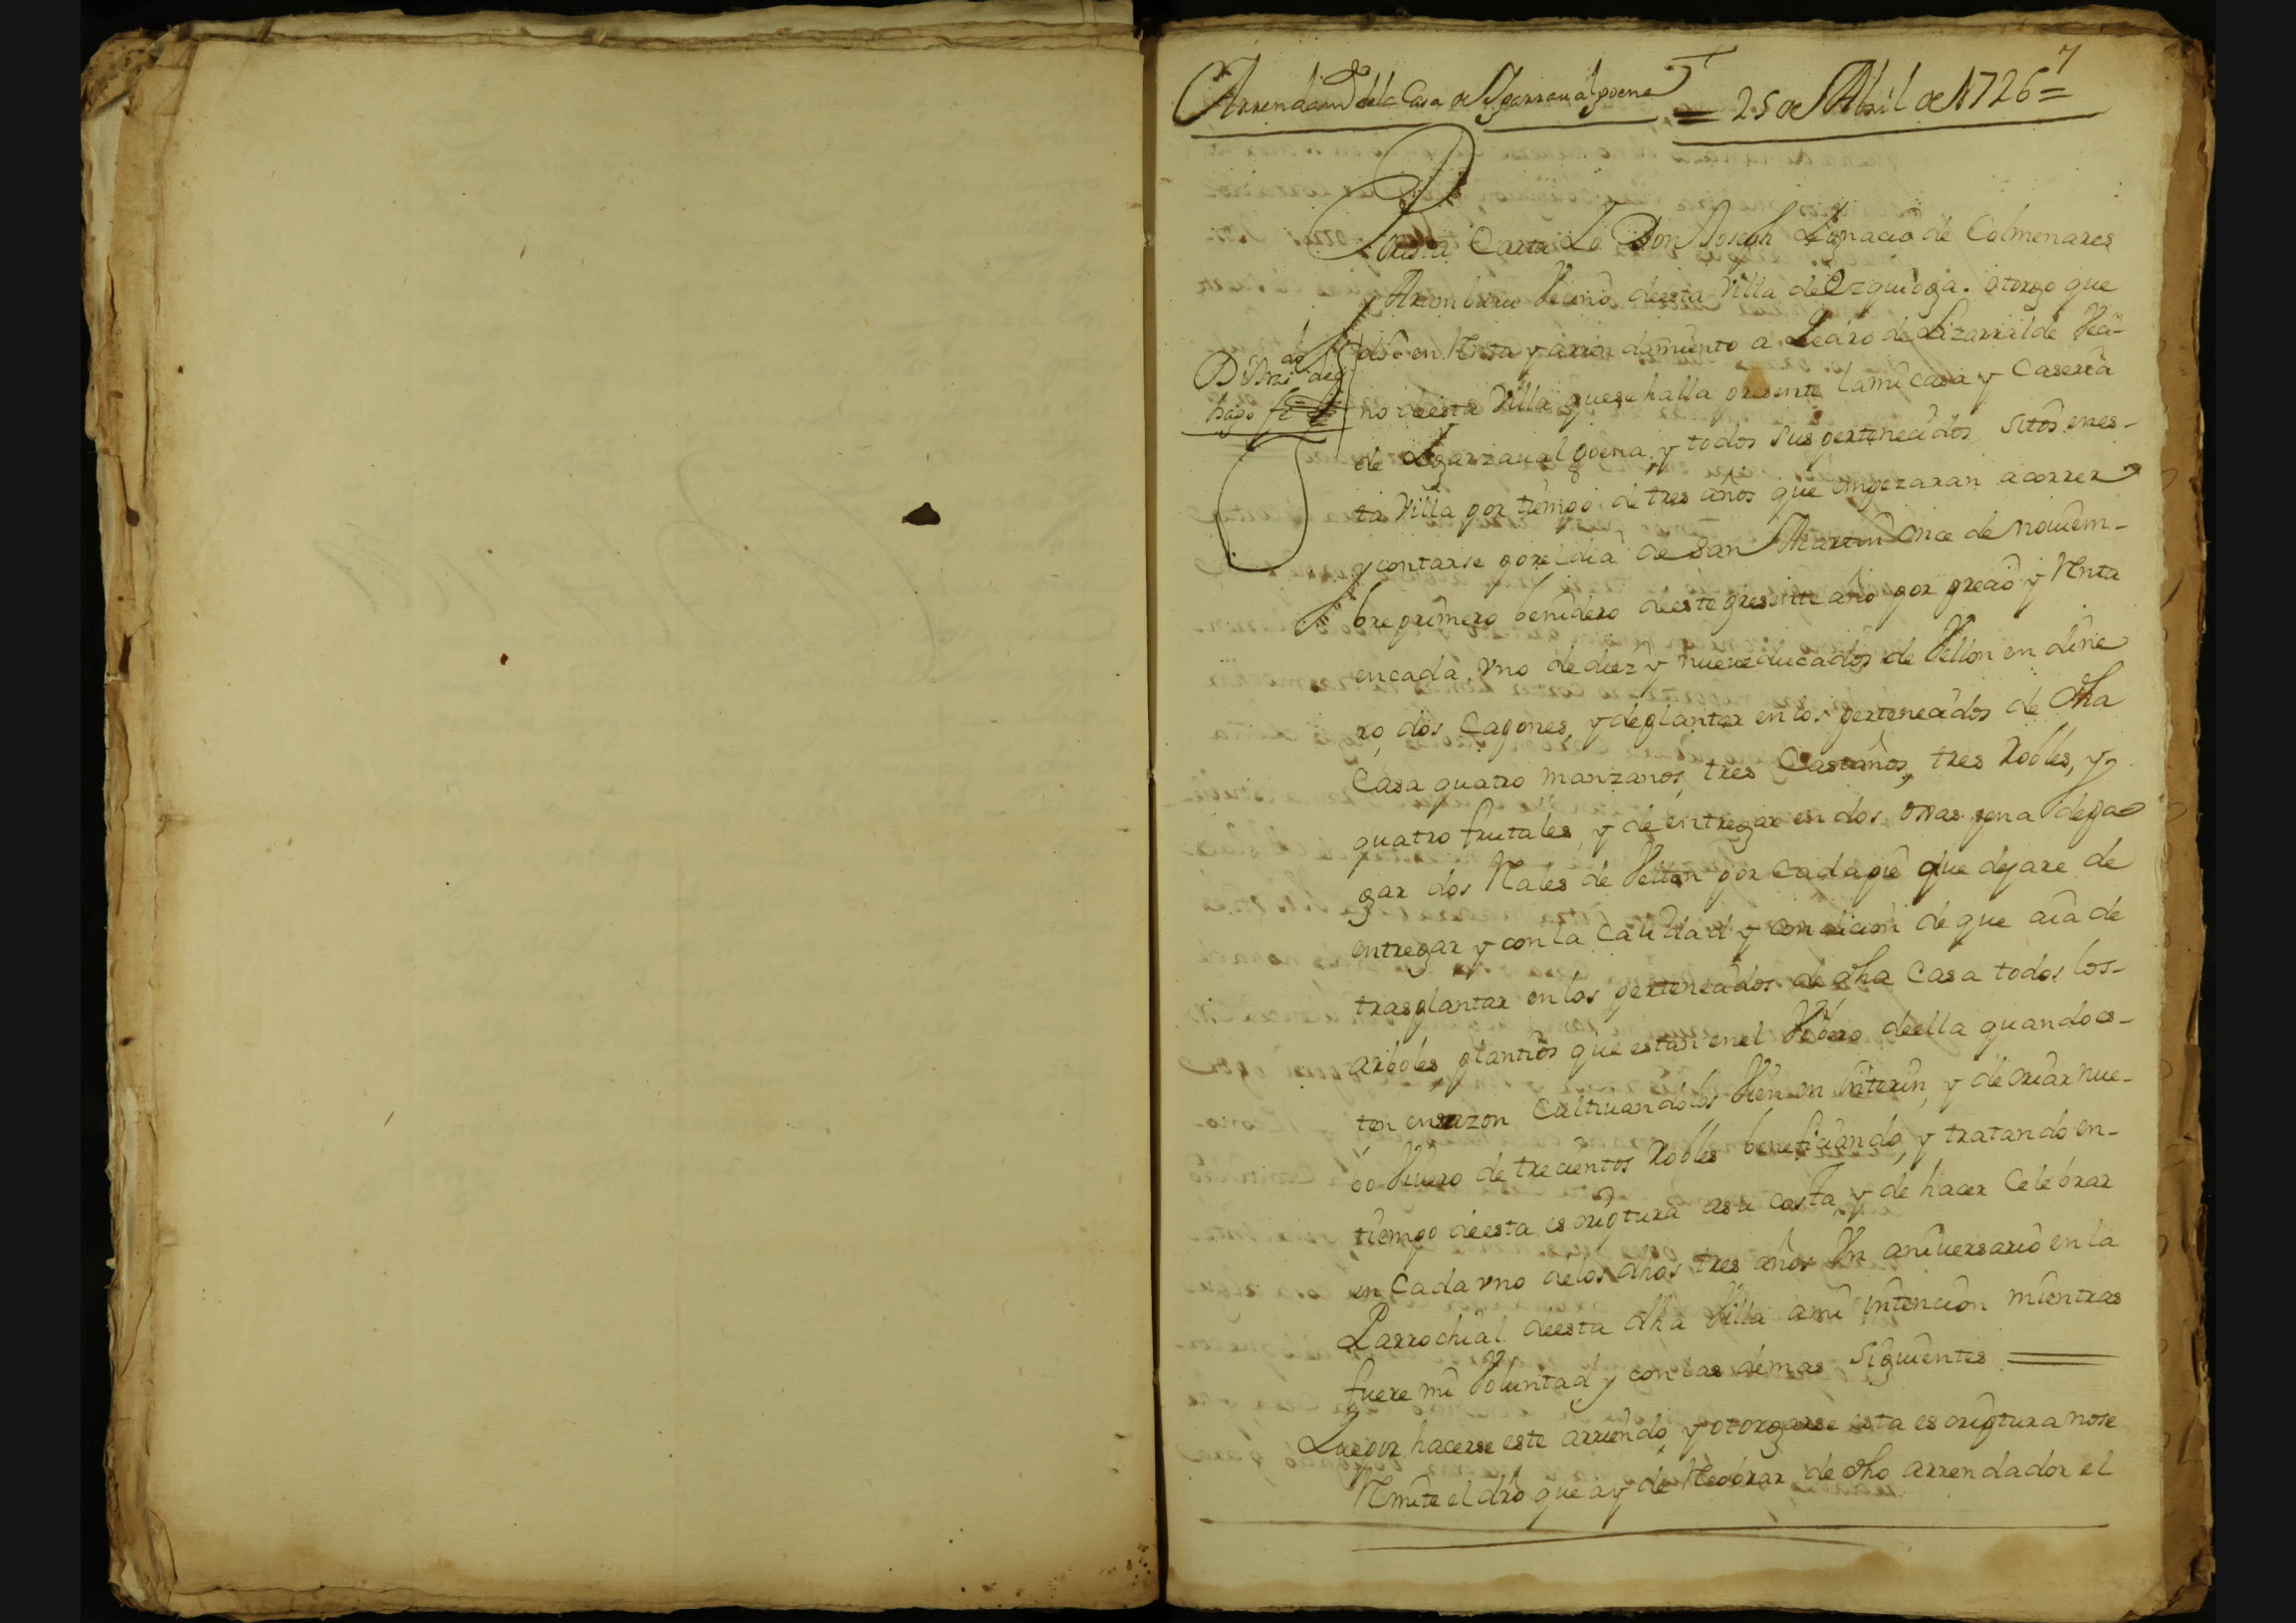 7
Arrendam.to dela Casa de Ygarzaualgoena = 25 de Abril de 1726 =
Por esta Carta Yo Don Joseph Ygnacio de Colmenares
y Aramburu Vecino deesta Villa de Ezquioga. otorgo que
doi en Renta y arrendamiento a Pedro de Lizarralde Veci-
no deesta Villa quese halla presente lami casa y Caseria
de Ygarzaualgoena, y todos sus pertenecidos sitos enes-
ta Villa por tiempo de tres años que empezaran acorrer
y contarse porel dia de San Martin Once de Nouiem-
bre primero benidero deeste presente año por precio y Renta
encada vno de diez y nueue ducados de Vellon en dine
ro, dos Capones, y de plantar en los pertenecidos de dha
Casa quatro manzanos, tres Castaños, tres Robles, y
quatro frutales, y de entregar en dos ojas pena de pa
gar dos Rales de Vellon por cada pie que dejare de
entregar y con la Calidad y condicion de que aia de
trasplantar en los pertenecidos de dha Casa todos los-
arboles plantios que estan enel Viuero deella quando es-
ten ensazon Cultiuandolos Vien en interin, y de criar nue-
bo Viuero de trecientos Robles beneficiando, y tratando en-
tiempo deesta escriptura asu costa, y de hacer Celebrar
en Cada vno delos dhos tres años Vn aniuersario en la
Parrochial deesta dha Villa ami intencion mientras
fuere mi Voluntad y con las demas Siguientes
Que por hacerse este arriendo, y otorgarse esta escriptura nose
Rmite el dro que ay de Recobrar de dho arrendador el
hago fe